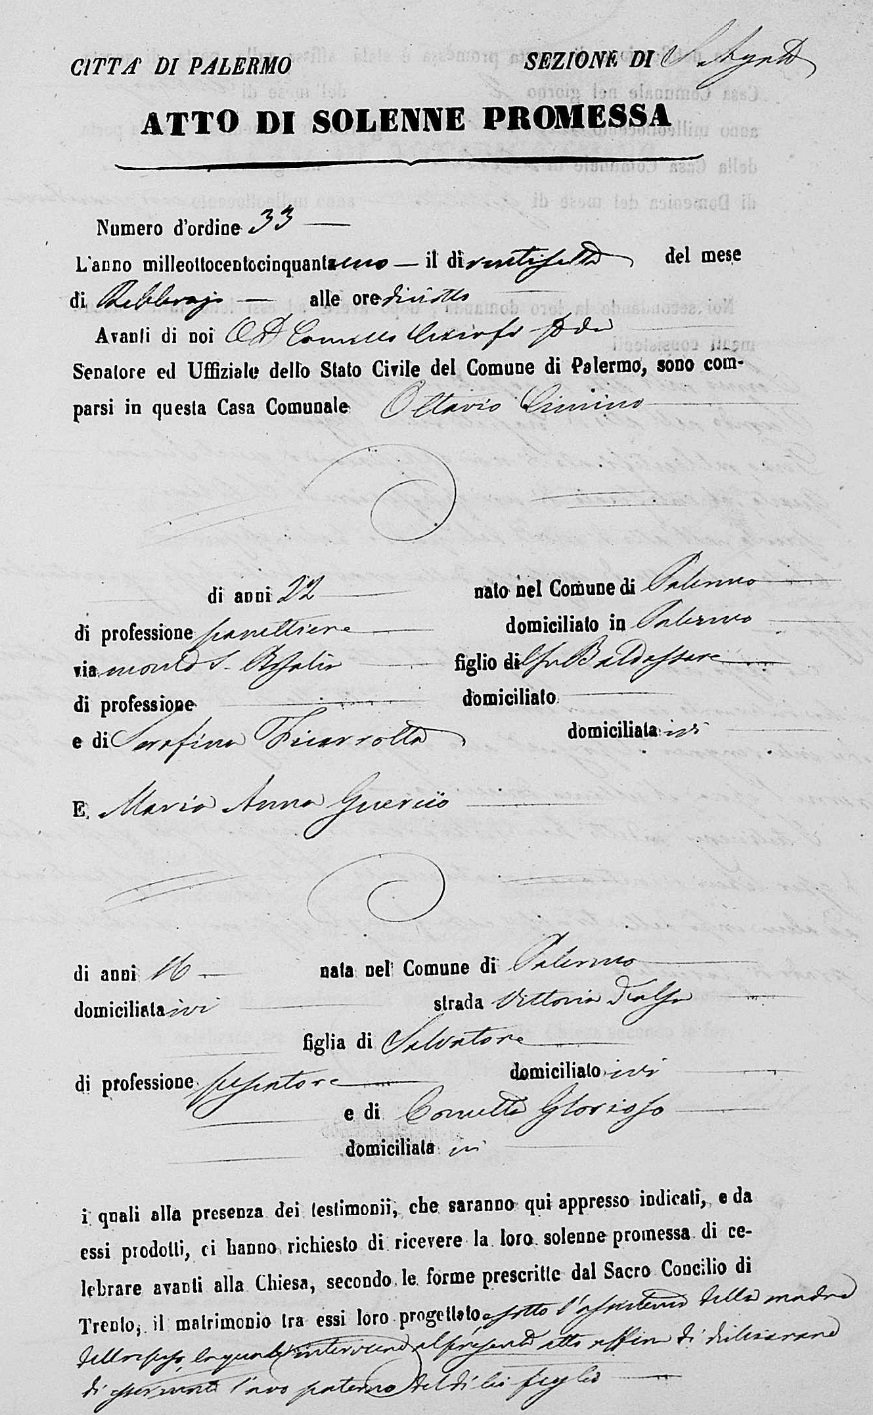 CITTA' DI PALERMO SEZIONE DI S. Agata
ATTO DI SOLENNE PROMESSA
Numero d'ordine 33
L'anno milleottocentocinquantauno il dì ventisette del mese
di Febbrajo alle ore diciotto
Avanti di noi D. Camillo
Senatore ed Uffiziale dello Stato Civile del Comune di Palermo, sono com-
parsi in questa Casa Comunale Ottavio Cimino
di anni 22 nato nel Comune di Palermo
di professione panettiere domiciliato in Palermo
via monte S. Rosalia figlio di fu Baldassare
di professione domiciliato
e di Serafina Ficarrotta domiciliata ivi
E Maria Anna Guercio
di anni 16 nata nel Comune di Palermo
domiciliata ivi strada Vittoria
figlia di Salvatore
di professione pesatore domiciliato ivi
e di Cometta Glorioso
domiciliata ivi
i quali alla presenza dei testimonii, che saranno qui appresso indicati, e da
essi prodotti, ci hanno richiesto di ricevere la loro solenne promessa di ce-
lebrare avanti alla Chiesa, secondo le forme prescritte dal Sacro Concilio di
Trento, il matrimonio tra essi loro progettato sotto l'assistenza della madre
dello sposo, la quale interviene al presente atto affin di dichiarare
di essere morto l'avo paterno del di lei figlio